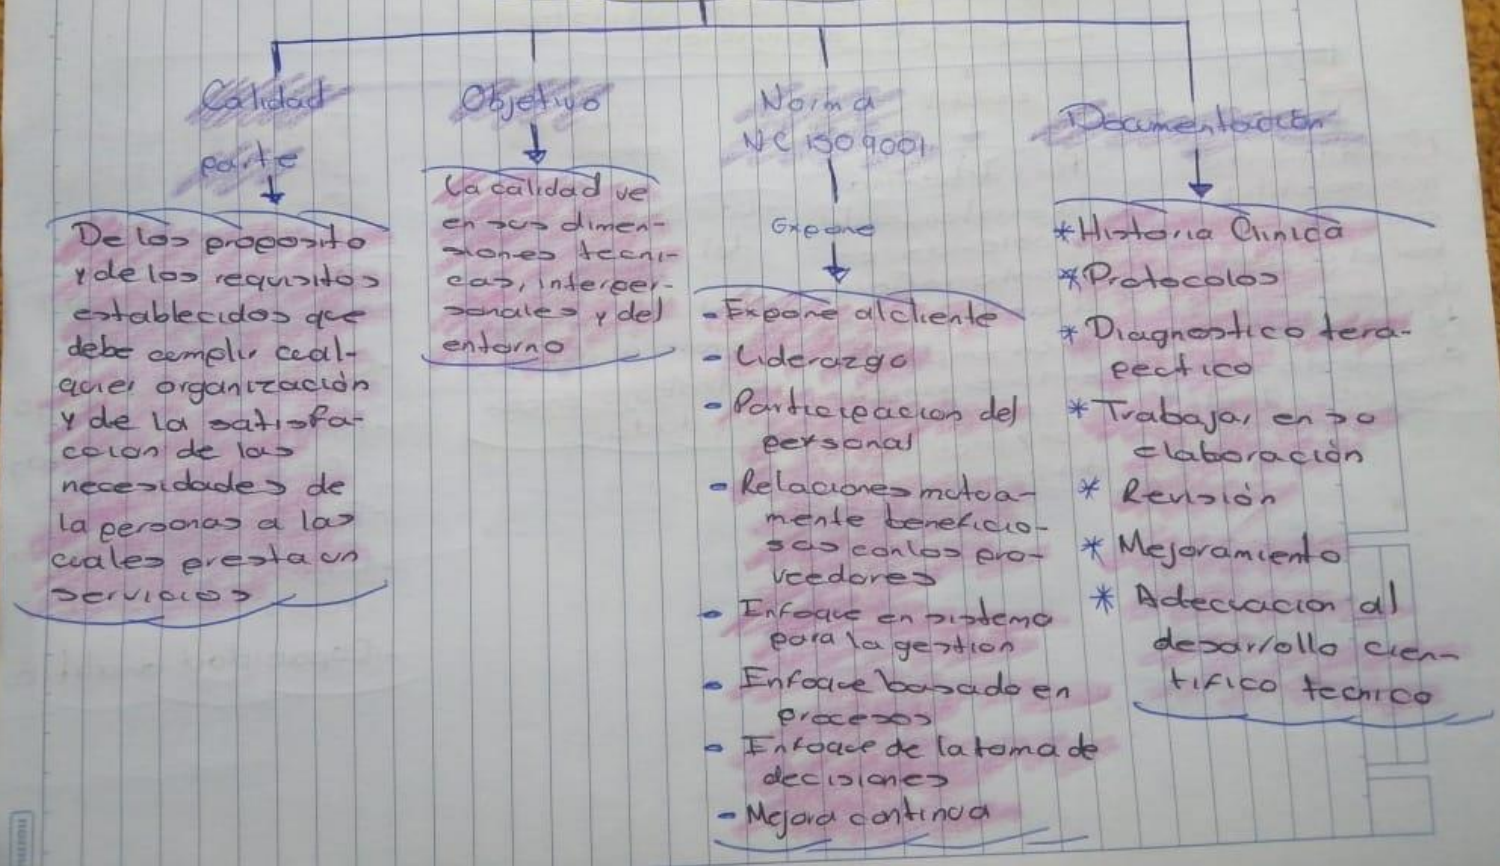 Calidad
parte
De los proposito
y de los requisitos
establecidos que
debe cumplir cual-
quier organización
y de la satisfa-
ccion de las
necesidades de
la personas a las
cuales presta un
servicios
Objetivo
La calidad ve
en sus dimen-
siones tecni-
cas, interper-
sonales y del
entorno
Norma
NC ISO 9001
Expone
- Expone al cliente
- Liderazgo
- Participacion del
personal
- Relaciones mutua-
mente beneficio-
sas con los pro-
veedores
- Enfoque en sistema
para la gestion
- Enfoque basado en
procesos
- Enfoque de la toma de
decisiones
- Mejora continua
Documentación
* Historia Clinica
* Protocolos
* Diagnostico tera-
peutico
* Trabajar en su
elaboración
* Revisión
* Mejoramiento
* Adecuacion al
desarrollo cien-
tifico tecnico